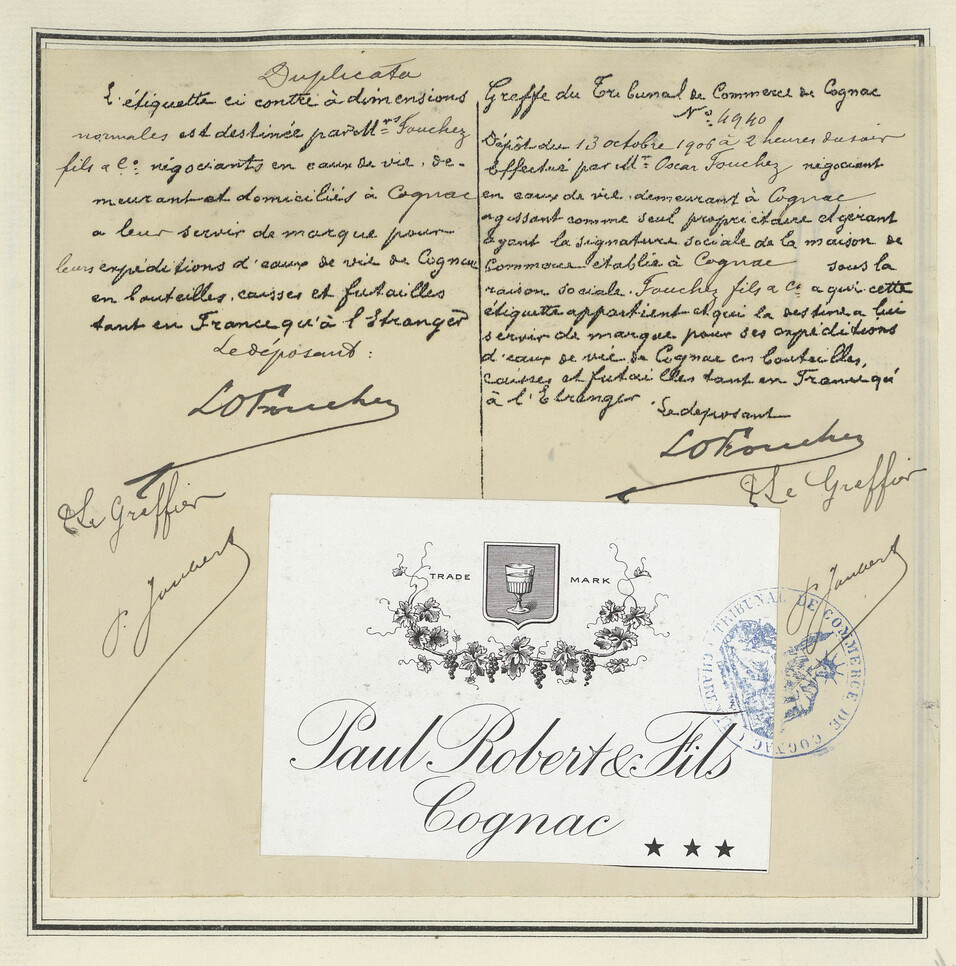 Duplicata
L'étiquette ci contre à dimensions
normales est destinée par Mrs Fouchez
fils & Co négociants en eaux de vie, de-
meurant et domiciliés à Cognac
a leur servir de marque pour
leurs expéditions d'eaux de vie de Cognac
en bouteilles, caisses et futailles
tant en France qu'à l'Etranger
Le déposant:
LOFouchez
Le Greffier
P. Jaubert
Greffe du Tribunal de Commerce de Cognac
No 4940
Dépôt du 13 octobre 1906 à 2 heures du soir
Effectué par Mr Oscar Fouchez négociant
en eaux de vie, demeurant à Cognac
agissant comme seul propriétaire et gérant
ayant la signature sociale de la maison de
Commerce établie à Cognac sous la
raison sociale. Fouchez fils & Co a qui cette
étiquette appartient et qui la destine a lui
servir de marque pour ses expéditions
d'eaux de vie de Cognac en bouteilles,
caisses et futailles tant en France qu'
à l'Etranger
Le déposant
LOFouchez
Le Greffier
P. Jaubert
TRADE MARK
Paul Robert & Fils
Cognac
★ ★ ★
TRIBUNAL DE COMMERCE DE COGNAC